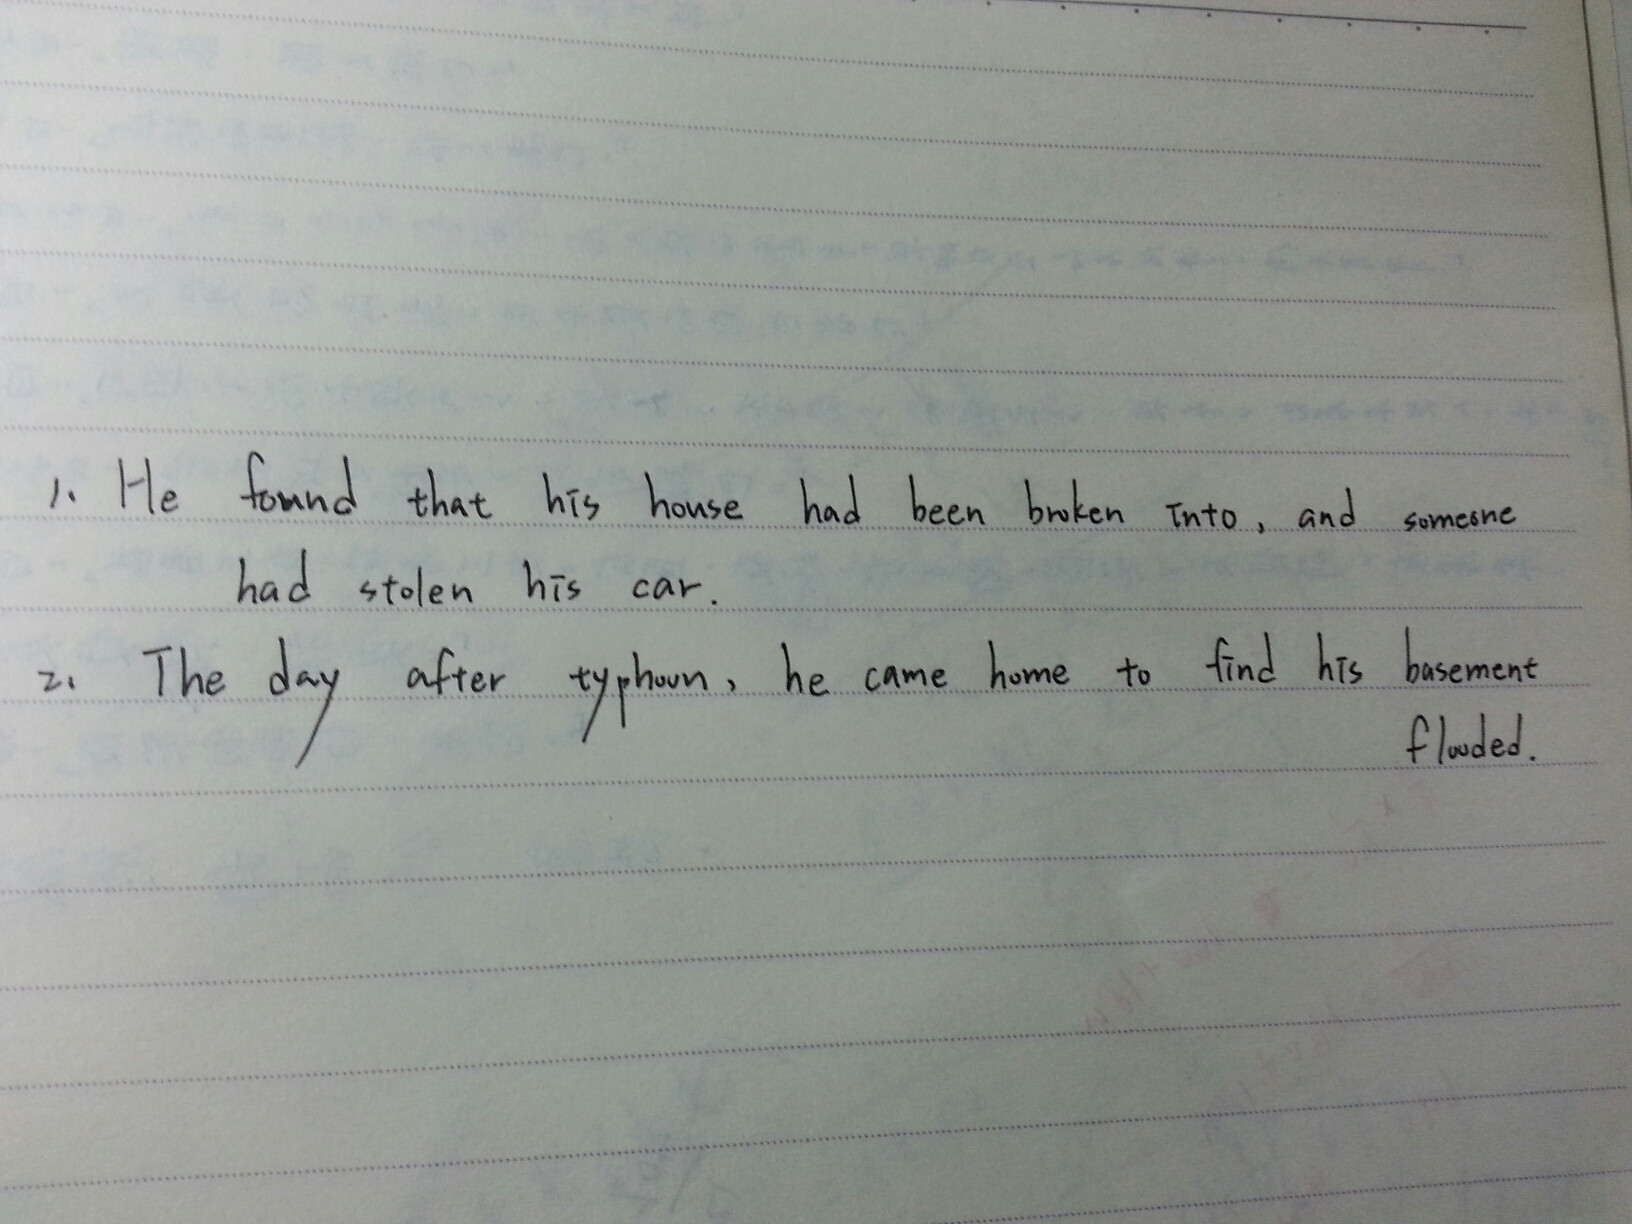 1. He found that his house had been broken into, and someone
had stolen his car.
2. The day after typhoon, he came home to find his basement
flooded.